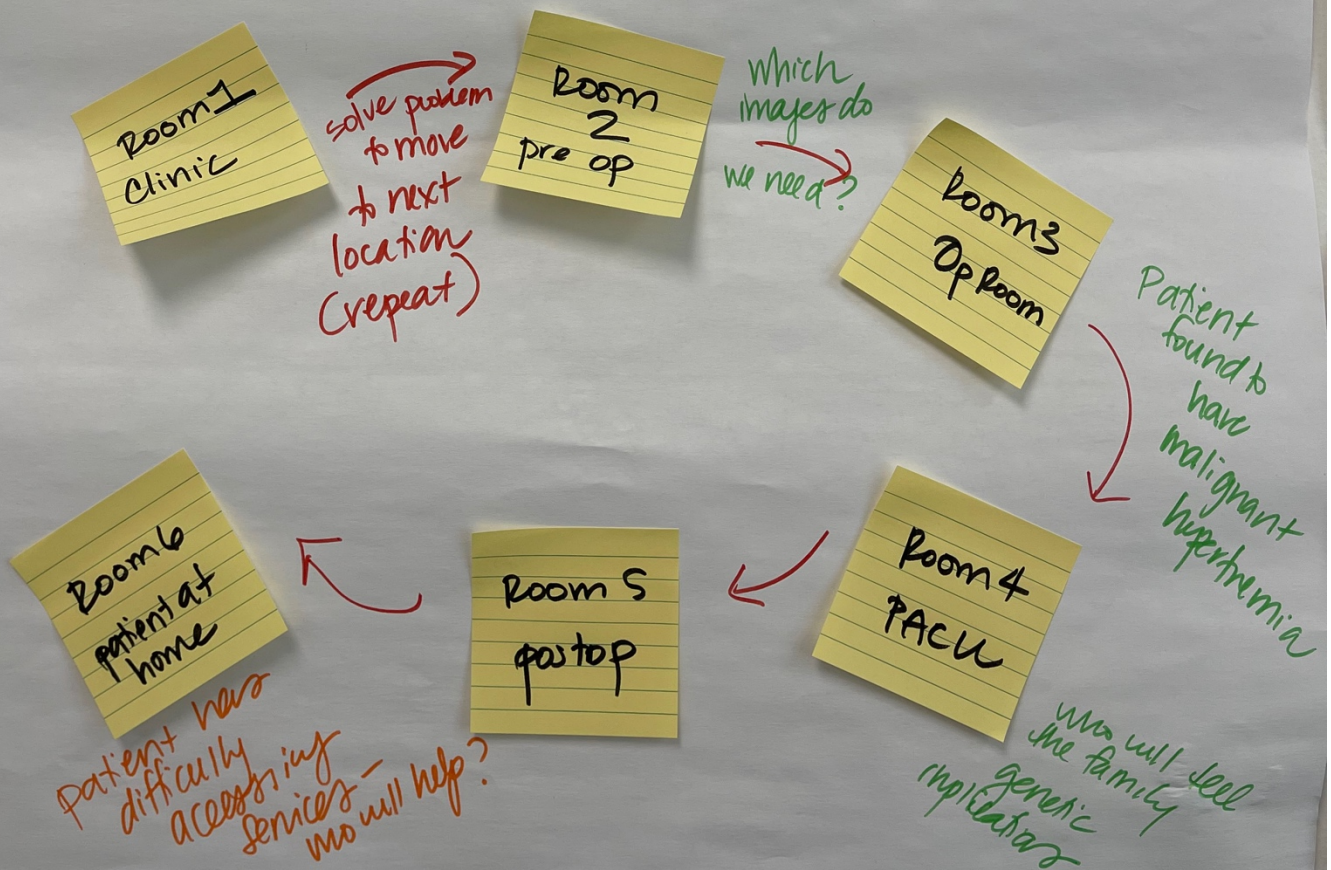 Room 1
Clinic
solve problem
to move
to next
location
(repeat)
Room
2
pre op
which
images do
we need?
Room 3
Op Room
Patient
found to
have
malignant
hyperthemia
Room 4
PACU
who will tell
the family
genetic
implications
Room 5
postop
Room 6
patient at
home
patient has
difficulty
acessing
services-
who will help?